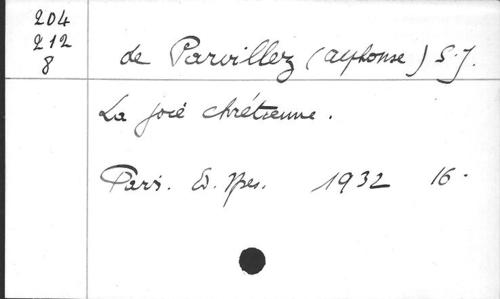 204
212
8
de Parvillez (Alphonse) S.J.
La joie chrétienne.
Paris. Ed. Spes. 1932 16.